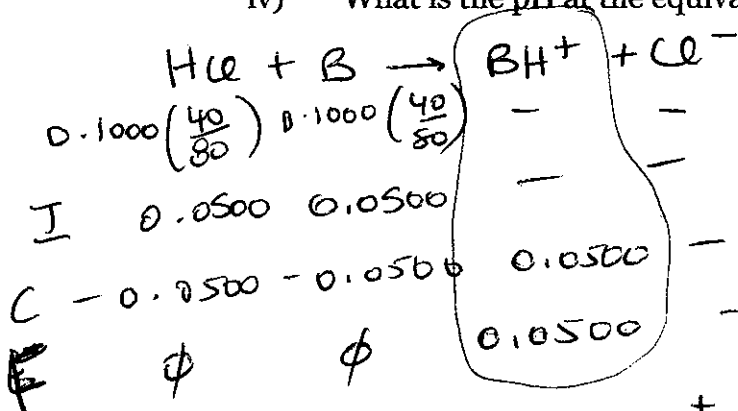 iv) What is the pH at the equiva
HCl + B → BH⁺ + Cl⁻
0.1000(40/80) 0.1000(40/80) — —
I 0.0500 0.0500 — —
C - 0.0500 - 0.0500 0.0500 —
E ϕ ϕ 0.0500 -
+